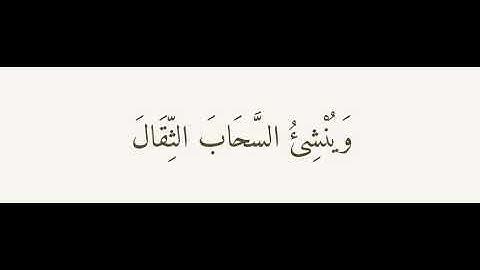 وَيُنْشِئُ السَّحَابَ الثِّقَالَ